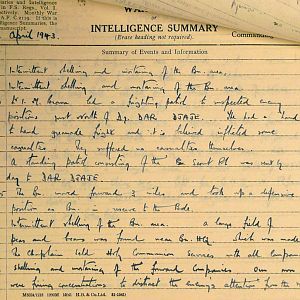 aries and Intelligence
in F.S. Regs., Vol. I
ectively. Monthly War
A.F. C.2119. If this is
ligence Summaries, the
nuscript.
WA
INTELLIGENCE SUMMARY
(Erase heading not required).
Commanding
April 1943.
Summary of Events and Information
Intermittent shelling and mortaring of the Bn. area.
Intermittent shelling and mortaring of the Bn. area.
led a fighting patrol to suspected enemy
positions just north of Dj. DAR DJATE. He had a hand
to hand grenade fight and it is believed inflicted some
casualties. They suffered no casualties themselves.
A standing patrol consisting of the Bn Scout Pl was sent by
day to DAR DJATE.
The Bn moved forward 3 miles and took up a defensive
position as Bn in reserve to the Bde.
Intermittent shelling of the Bn area. a large field of
peas and beans was found near Bn. HQ. which was made
The Chaplain held Holy Communion Services with all companies
shelling and mortaring of the forward Companies. Our mor
were firing concentrations to distract the enemy's attention from the